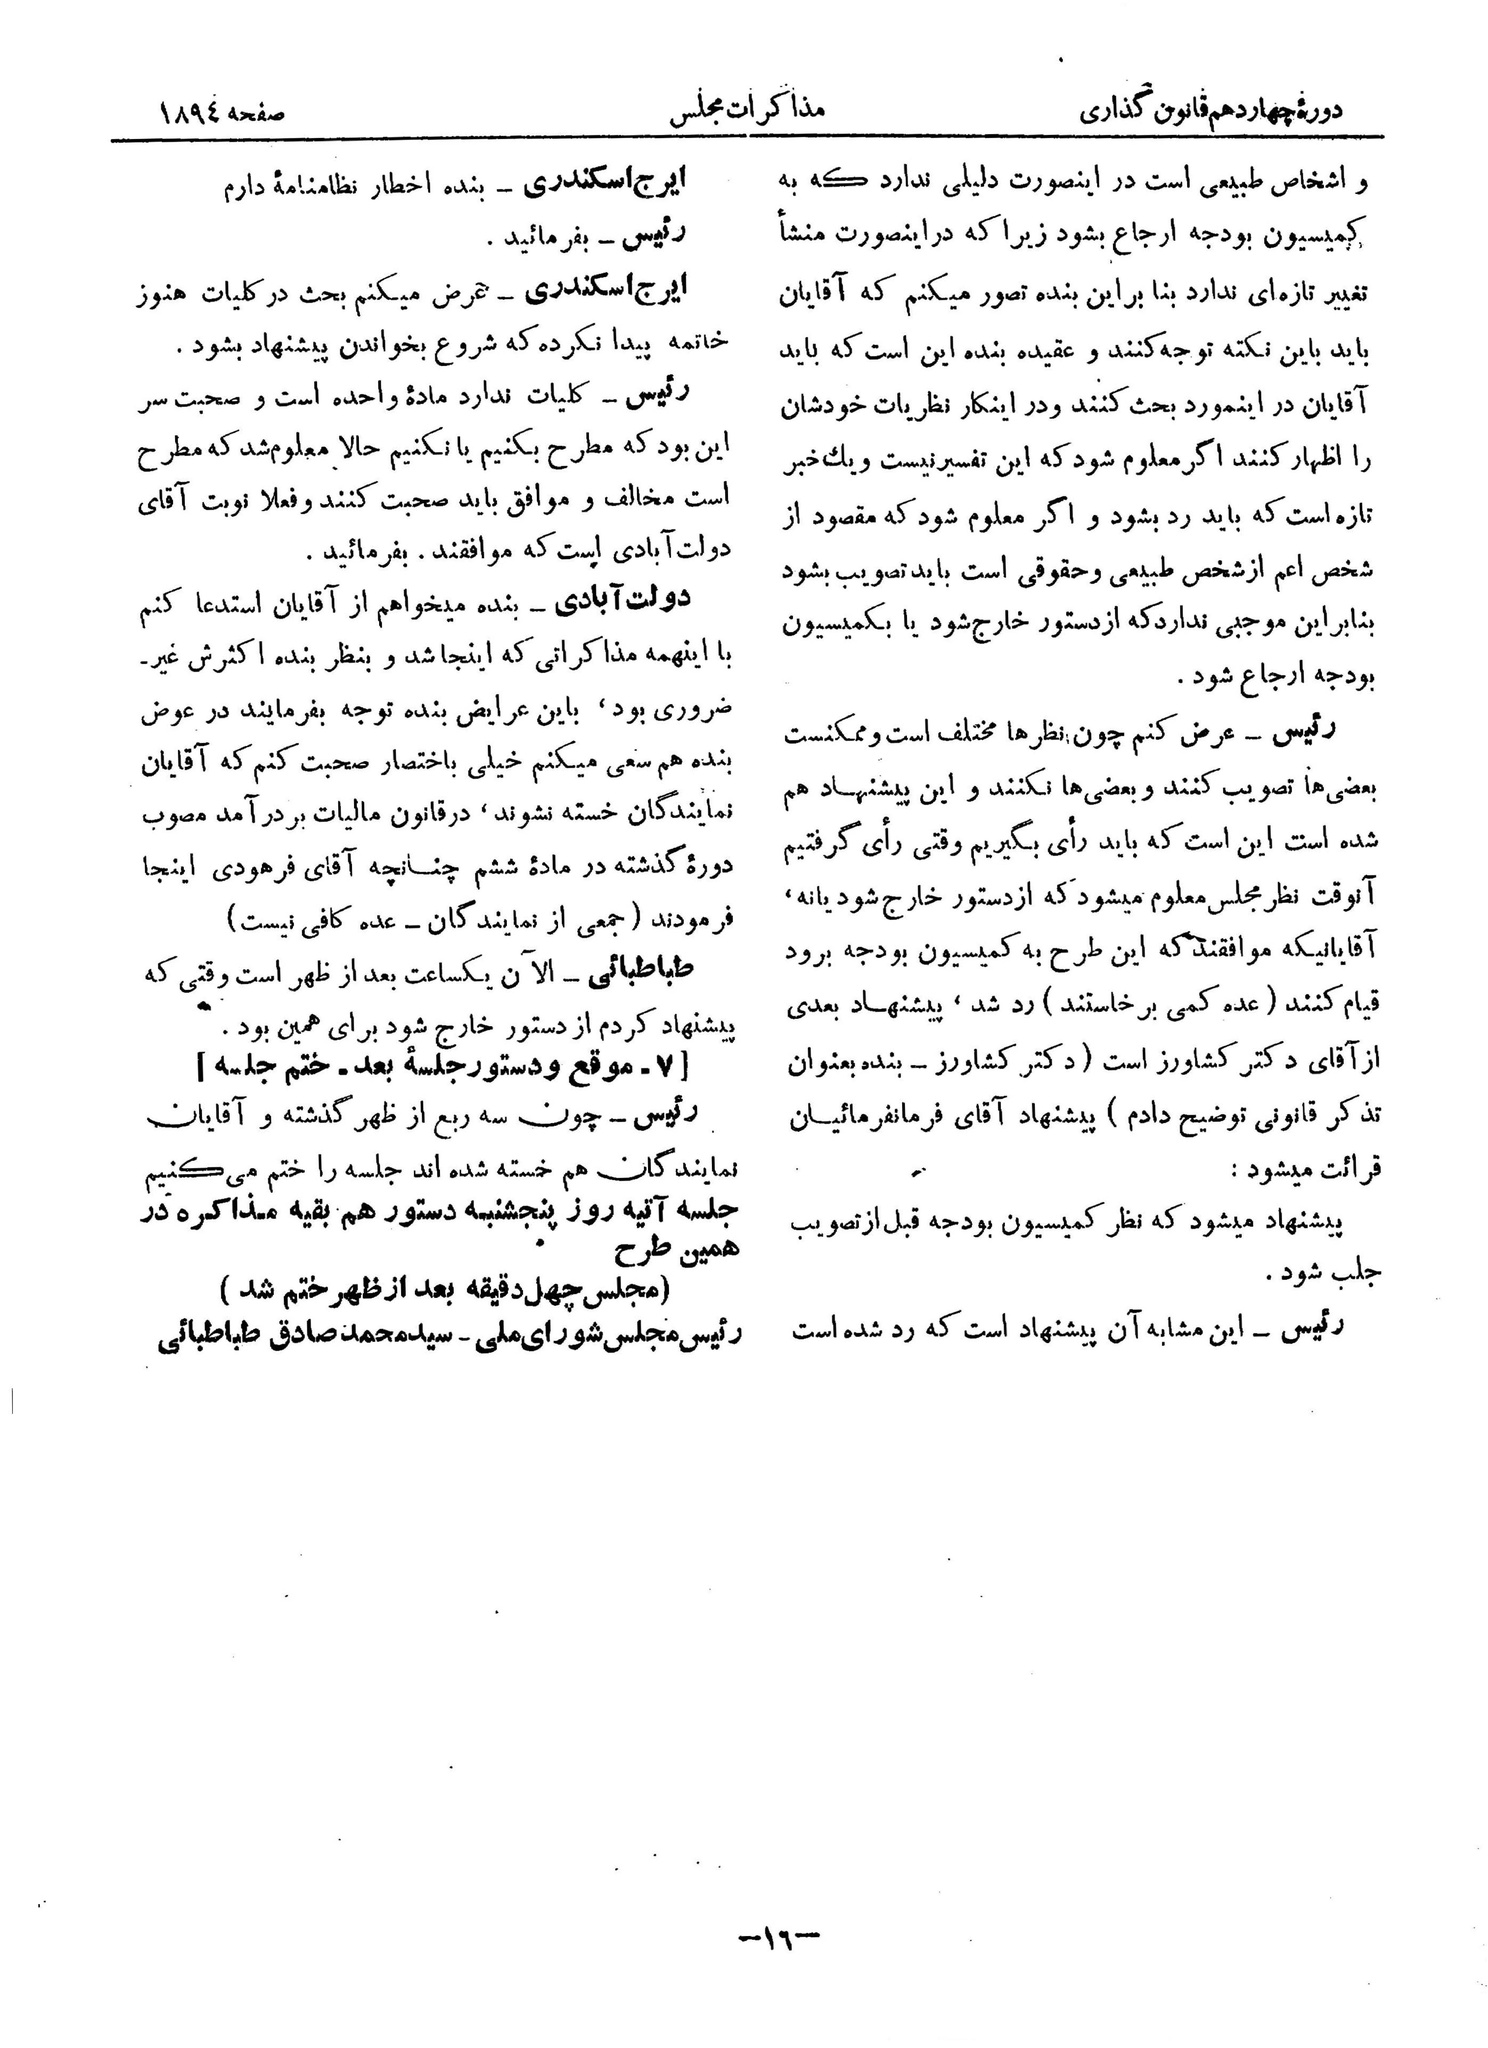 دورهٔ چهاردهم قانون گذاری
مذاکرات مجلس
صفحه ۱۸۹٤
و اشخاص طبیعی است در اینصورت دلیلی ندارد که به
کمیسیون بودجه ارجاع بشود زیرا که در اینصورت منشأ
تغییر تازه‌ای ندارد بنا بر این بنده تصور میکنم که آقایان
باید باین نکته توجه کنند و عقیده بنده این است که باید
آقایان در اینمورد بحث کنند ودر اینکار نظریات خودشان
را اظهار کنند اگر معلوم شود که این تفسیر نیست و یك خبر
تازه است که باید رد بشود و اگر معلوم شود که مقصود از
شخص اعم از شخص طبیعی و حقوقی است باید تصویب بشود
بنابراین موجبی ندارد که از دستور خارج شود یا بکمیسیون
بودجه ارجاع شود .
رئیس ـ عرض کنم چون نظرها مختلف است و ممکنست
بعضی‌ها تصویب کنند و بعضی‌ها نکنند و این پیشنهاد هم
شده است این است که باید رأی بگیریم وقتی رأی گرفتیم
آنوقت نظر مجلس معلوم میشود که از دستور خارج شود یانه ،
آقایانیکه موافقند که این طرح به کمیسیون بودجه برود
قیام کنند ( عده کمی برخاستند ) رد شد ، پیشنهاد بعدی
از آقای دکتر کشاورز است ( دکتر کشاورز ـ بنده بعنوان
تذکر قانونی توضیح دادم ) پیشنهاد آقای فرمانفرمائیان
قرائت میشود :
پیشنهاد میشود که نظر کمیسیون بودجه قبل از تصویب
جلب شود .
رئیس ـ این مشابه آن پیشنهاد است که رد شده است
ایرج اسکندری ـ بنده اخطار نظامنامهٔ دارم
رئیس ـ بفرمائید .
ایرج اسکندری ـ عرض میکنم بحث در کلیات هنوز
خاتمه پیدا نکرده که شروع بخواندن پیشنهاد بشود .
رئیس ـ کلیات ندارد مادهٔ واحده است و صحبت سر
این بود که مطرح بکنیم یا نکنیم حالا معلوم شد که مطرح
است مخالف و موافق باید صحبت کنند و فعلا نوبت آقای
دولت آبادی است که موافقند . بفرمائید .
دولت آبادی ـ بنده میخواهم از آقایان استدعا کنم
با اینهمه مذاکراتی که اینجا شد و بنظر بنده اکثرش غیر-
ضروری بود ، باین عرایض بنده توجه بفرمایند در عوض
بنده هم سعی میکنم خیلی باختصار صحبت کنم که آقایان
نمایندگان خسته نشوند ، در قانون مالیات بر درآمد مصوب
دورهٔ گذشته در مادهٔ ششم چنانچه آقای فرهودی اینجا
فرمودند ( جمعی از نمایندگان ـ عده کافی نیست )
طباطبائی ـ الآن یکساعت بعد از ظهر است وقتی که
پیشنهاد کردم از دستور خارج شود برای همین بود .
[ ۷ ـ موقع و دستور جلسهٔ بعد ـ ختم جلسه ]
رئیس ـ چون سه ربع از ظهر گذشته و آقایان
نمایندگان هم خسته شده اند جلسه را ختم می‌کنیم
جلسه آتیه روز پنجشنبه دستور هم بقیه مذاکره در
همین طرح
( مجلس چهل دقیقه بعد از ظهر ختم شد )
رئیس مجلس شورای ملی ـ سید محمد صادق طباطبائی
-۱٦-